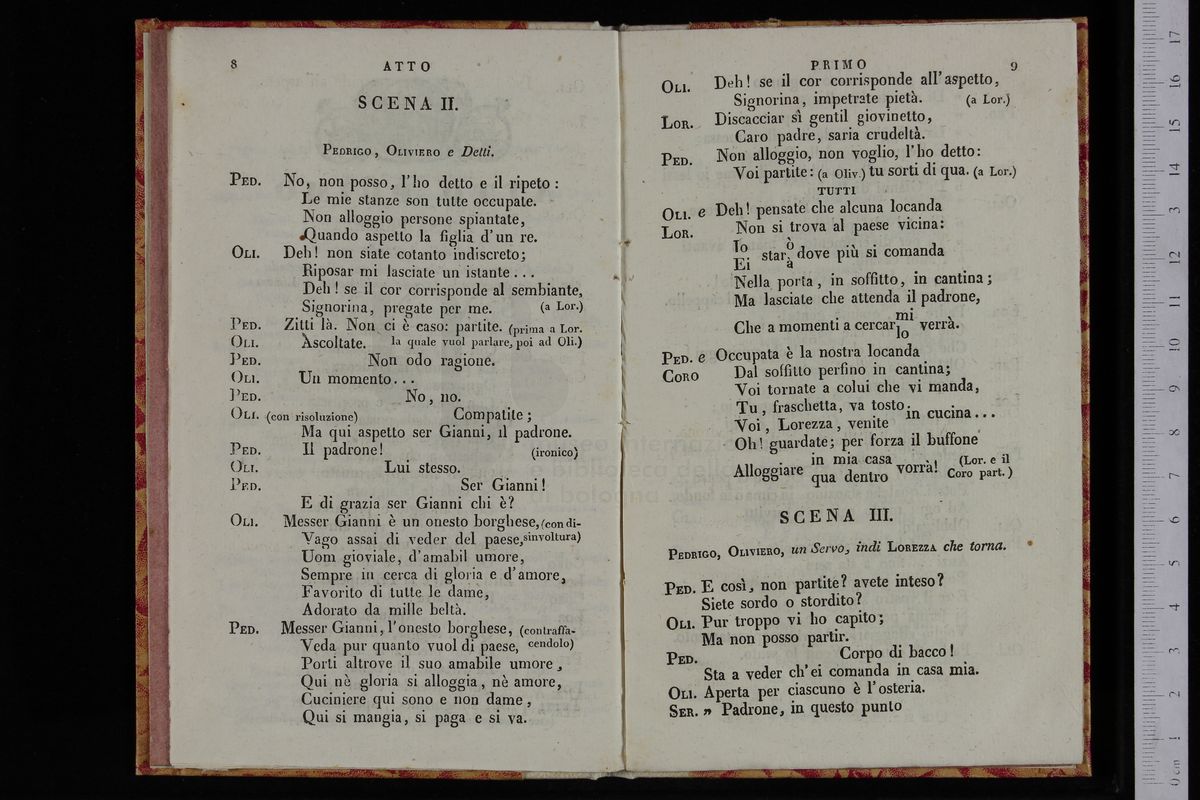 8 ATTO
SCENA II.
PEDRIGO, OLIVIERO e Detti.
PED. No, non posso, l'ho detto e il ripeto:
Le mie stanze son tutte occupate.
Non alloggio persone spiantate,
Quando aspetto la figlia d'un re.
OLI. Deh! non siate cotanto indiscreto;
Riposar mi lasciate un istante...
Deh! se il cor corrisponde al sembiante,
Signorina, pregate per me. (a Lor.)
PED. Zitti là. Non ci è caso: partite. (prima a Lor.
OLI. Ascoltate. la quale vuol parlare, poi ad Oli.)
PED. Non odo ragione.
OLI. Un momento...
PED. No, no.
OLI. (con risoluzione) Compatite;
Ma qui aspetto ser Gianni, il padrone.
PED. Il padrone! (ironico)
OLI. Lui stesso.
PED. Ser Gianni!
E di grazia ser Gianni chi è?
OLI. Messer Gianni è un onesto borghese, (con di-
Vago assai di veder del paese, sinvoltura)
Uom gioviale, d'amabil umore,
Sempre in cerca di gloria e d'amore,
Favorito di tutte le dame,
Adorato da mille beltà.
PED. Messer Gianni, l'onesto borghese, (contraffa-
Veda pur quanto vuol di paese, cendolo)
Porti altrove il suo amabile umore,
Qui nè gloria si alloggia, nè amore,
Cuciniere qui sono e non dame,
Qui si mangia, si paga e si va.
PRIMO 9
OLI. Deh! se il cor corrisponde all'aspetto,
Signorina, impetrate pietà. (a Lor.)
LOR. Discacciar sì gentil giovinetto,
Caro padre, saria crudeltà.
PED. Non alloggio, non voglio, l'ho detto:
Voi partite: (a Oliv.) tu sorti di qua. (a Lor.)
TUTTI
OLI. e Deh! pensate che alcuna locanda
LOR. Non si trova al paese vicina:
Io ò
star dove più si comanda
Ei à
Nella porta, in soffitto, in cantina;
Ma lasciate che attenda il padrone,
mi
Che a momenti a cercar verrà.
lo
PED. e Occupata è la nostra locanda
CORO Dal soffitto perfino in cantina;
Voi tornate a colui che vi manda,
Tu, fraschetta, va tosto
in cucina...
Voi, Lorezza, venite
Oh! guardate; per forza il buffone
in mia casa (Lor. e il
Alloggiare vorrà!
qua dentro Coro part.)
SCENA III.
PEDRIGO, OLIVIERO, un Servo, indi LOREZZA che torna.
PED. E così, non partite? avete inteso?
Siete sordo o stordito?
OLI. Pur troppo vi ho capito;
Ma non posso partir.
PED. Corpo di bacco!
Sta a veder ch'ei comanda in casa mia.
OLI. Aperta per ciascuno è l'osteria.
SER. „ Padrone, in questo punto